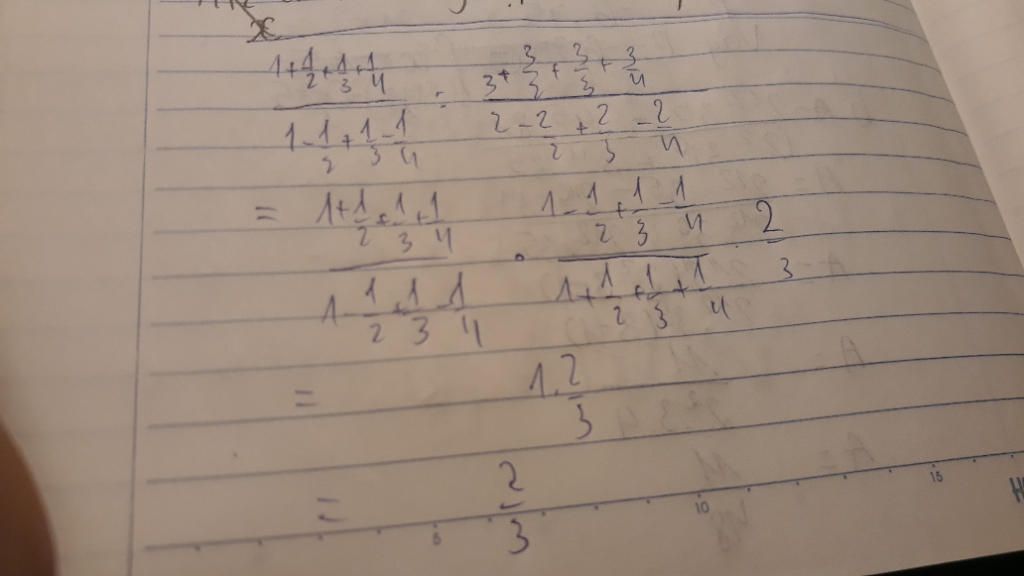 x
(1+1/2+1/3+1/4)/(1-1/2+1/3-1/4) : (3+3/2+3/3+3/4)/(2-2/2+2/3-2/4)
= (1+1/2+1/3+1/4)/(1-1/2+1/3-1/4) . (1-1/2+1/3-1/4)/(1+1/2+1/3+1/4) . 2/3
= 1.2/3
= 2/3
5 10 15